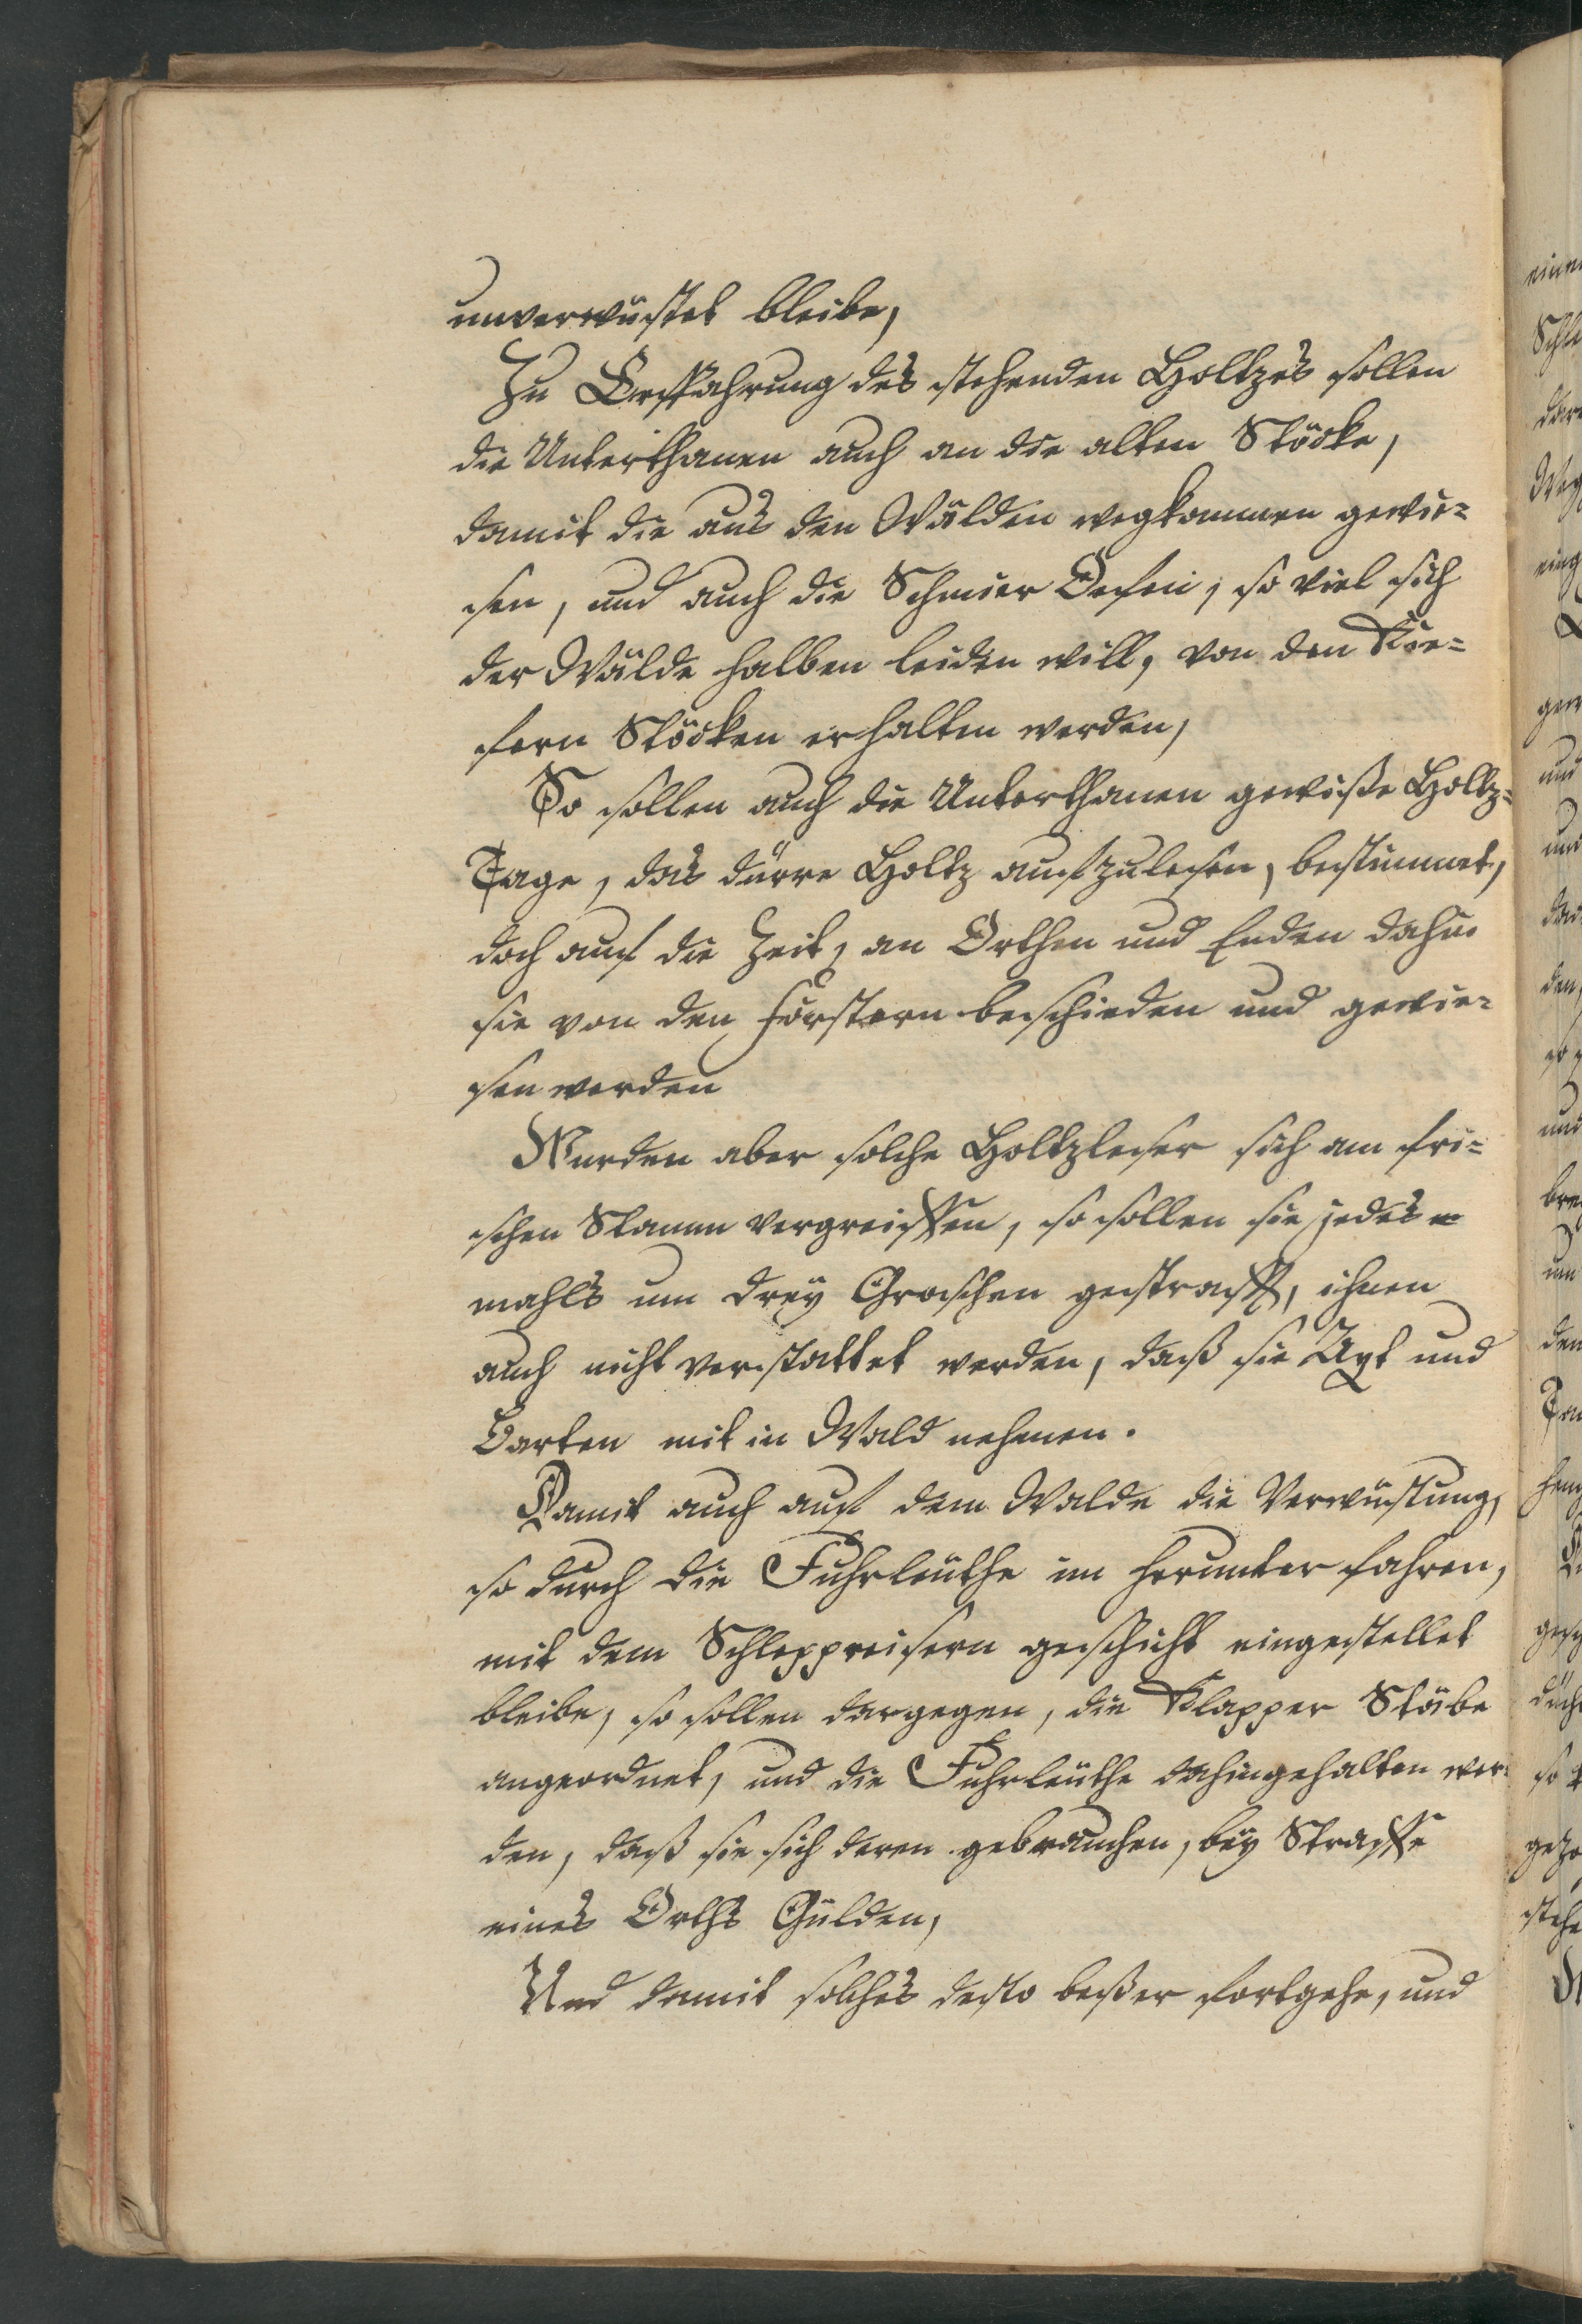 unverwüstet bleibe,
Zu Ersparung des stehenden Holtzes sollen
die Unterthanen auch an die alten Stöcke,
damit die aus den Wälden wegkommen gewie-
sen, und auch die Schmier Oefen, so viel sich
der Wälde halben leiden will, von den Kie-
fern Stöcken erhalten werden,
So sollen auch die Unterthanen gewiße Holtz-
Tage, das dürre Holtz aufzulesen, bestimmet,
doch auf die Zeit, an Orthen und Enden dahin
sie von den Förstern beschieden und gewie-
sen werden
Würden aber solche Holtzleser sich am fri-
schen Stamm vergreiffen, so sollen sie jedes-
mahls um drey Groschen gestrafft, ihnen
auch nicht verstattet werden, daß sie Axt und
Barten mit in Wald nehmen.
Damit auch auf dem Walde die Verwüstung,
so durch die Fuhrleuthe im herunter fahren,
mit dem Schleppreisern geschicht eingestellet
bleibe, so sollen dargegen, die Klapper Stäbe
angeordnet, und die Fuhrleuthe dahingehalten wer-
den, daß sie sich deren gebrauchen, bey Straffe
eines Orths Gülden,
Und damit solches desto beßer fortgehe, und